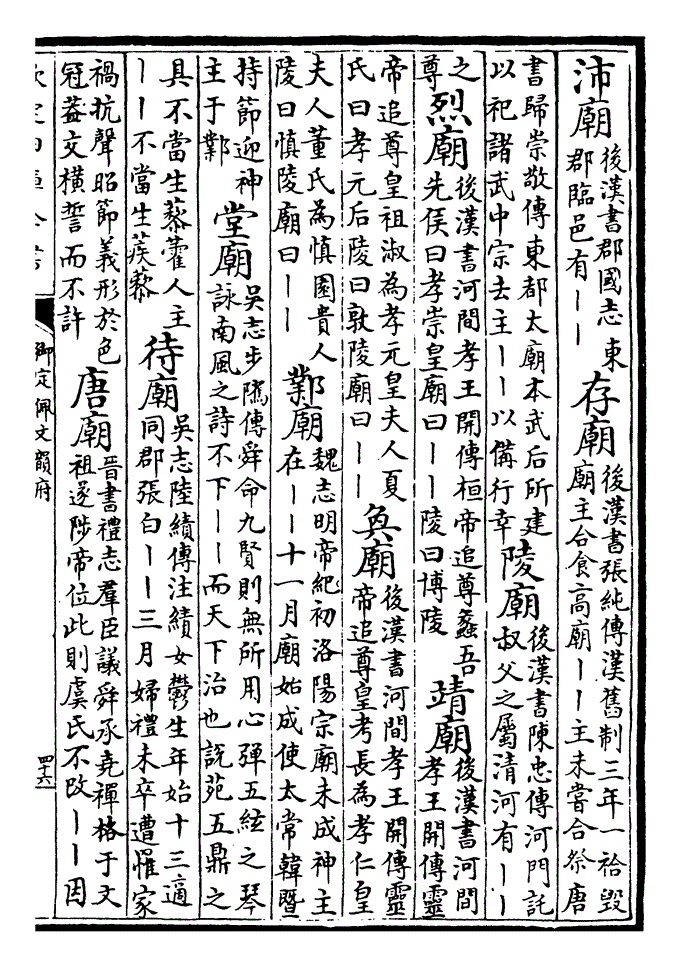 沛廟
後漢書郡國志東
郡臨邑有丨丨
存廟
後漢書張純傳漢舊制三年一祫毀
廟主合食高廟丨丨主未嘗合祭唐
書歸崇敬傳東都太廟本武后所建
以祀諸武中宗去主丨丨以備行幸
陵廟
後漢書陳忠傳河門託
叔父之屬清河有丨丨
之
尊
烈廟
後漢書河間孝王開傳桓帝追尊蠡吾
先侯曰孝崇皇廟曰丨丨陵曰博陵
靖廟
後漢書河間
孝王開傳靈
帝追尊皇祖淑為孝元皇夫人夏
氏曰孝元后陵曰敦陵廟曰丨丨
奐廟
後漢書河間孝王開傳靈
帝追尊皇考長為孝仁皇
夫人董氏為慎園貴人
陵曰慎陵廟曰丨丨
鄴廟
魏志明帝紀初洛陽宗廟未成神主
在丨丨十一月廟始成使太常韓暨
持節迎神
主于鄴
堂廟
吳志步隲傳舜命九賢則無所用心彈五絃之琴
詠南風之詩不下丨丨而天下治也說苑五鼎之
具不當生藜藿人主
丨丨不當生蒺藜
待廟
吳志陸績傳注績女鬱生年始十三適
同郡張白丨丨三月婦禮未卒遭罹家
禍抗聲昭節義形於色
冠葢交橫誓而不許
唐廟
晉書禮志羣臣議舜承堯禪格于文
祖遂陟帝位此則虞氏不改丨丨因
欽定四庫全書
御定佩文韻府
四十六